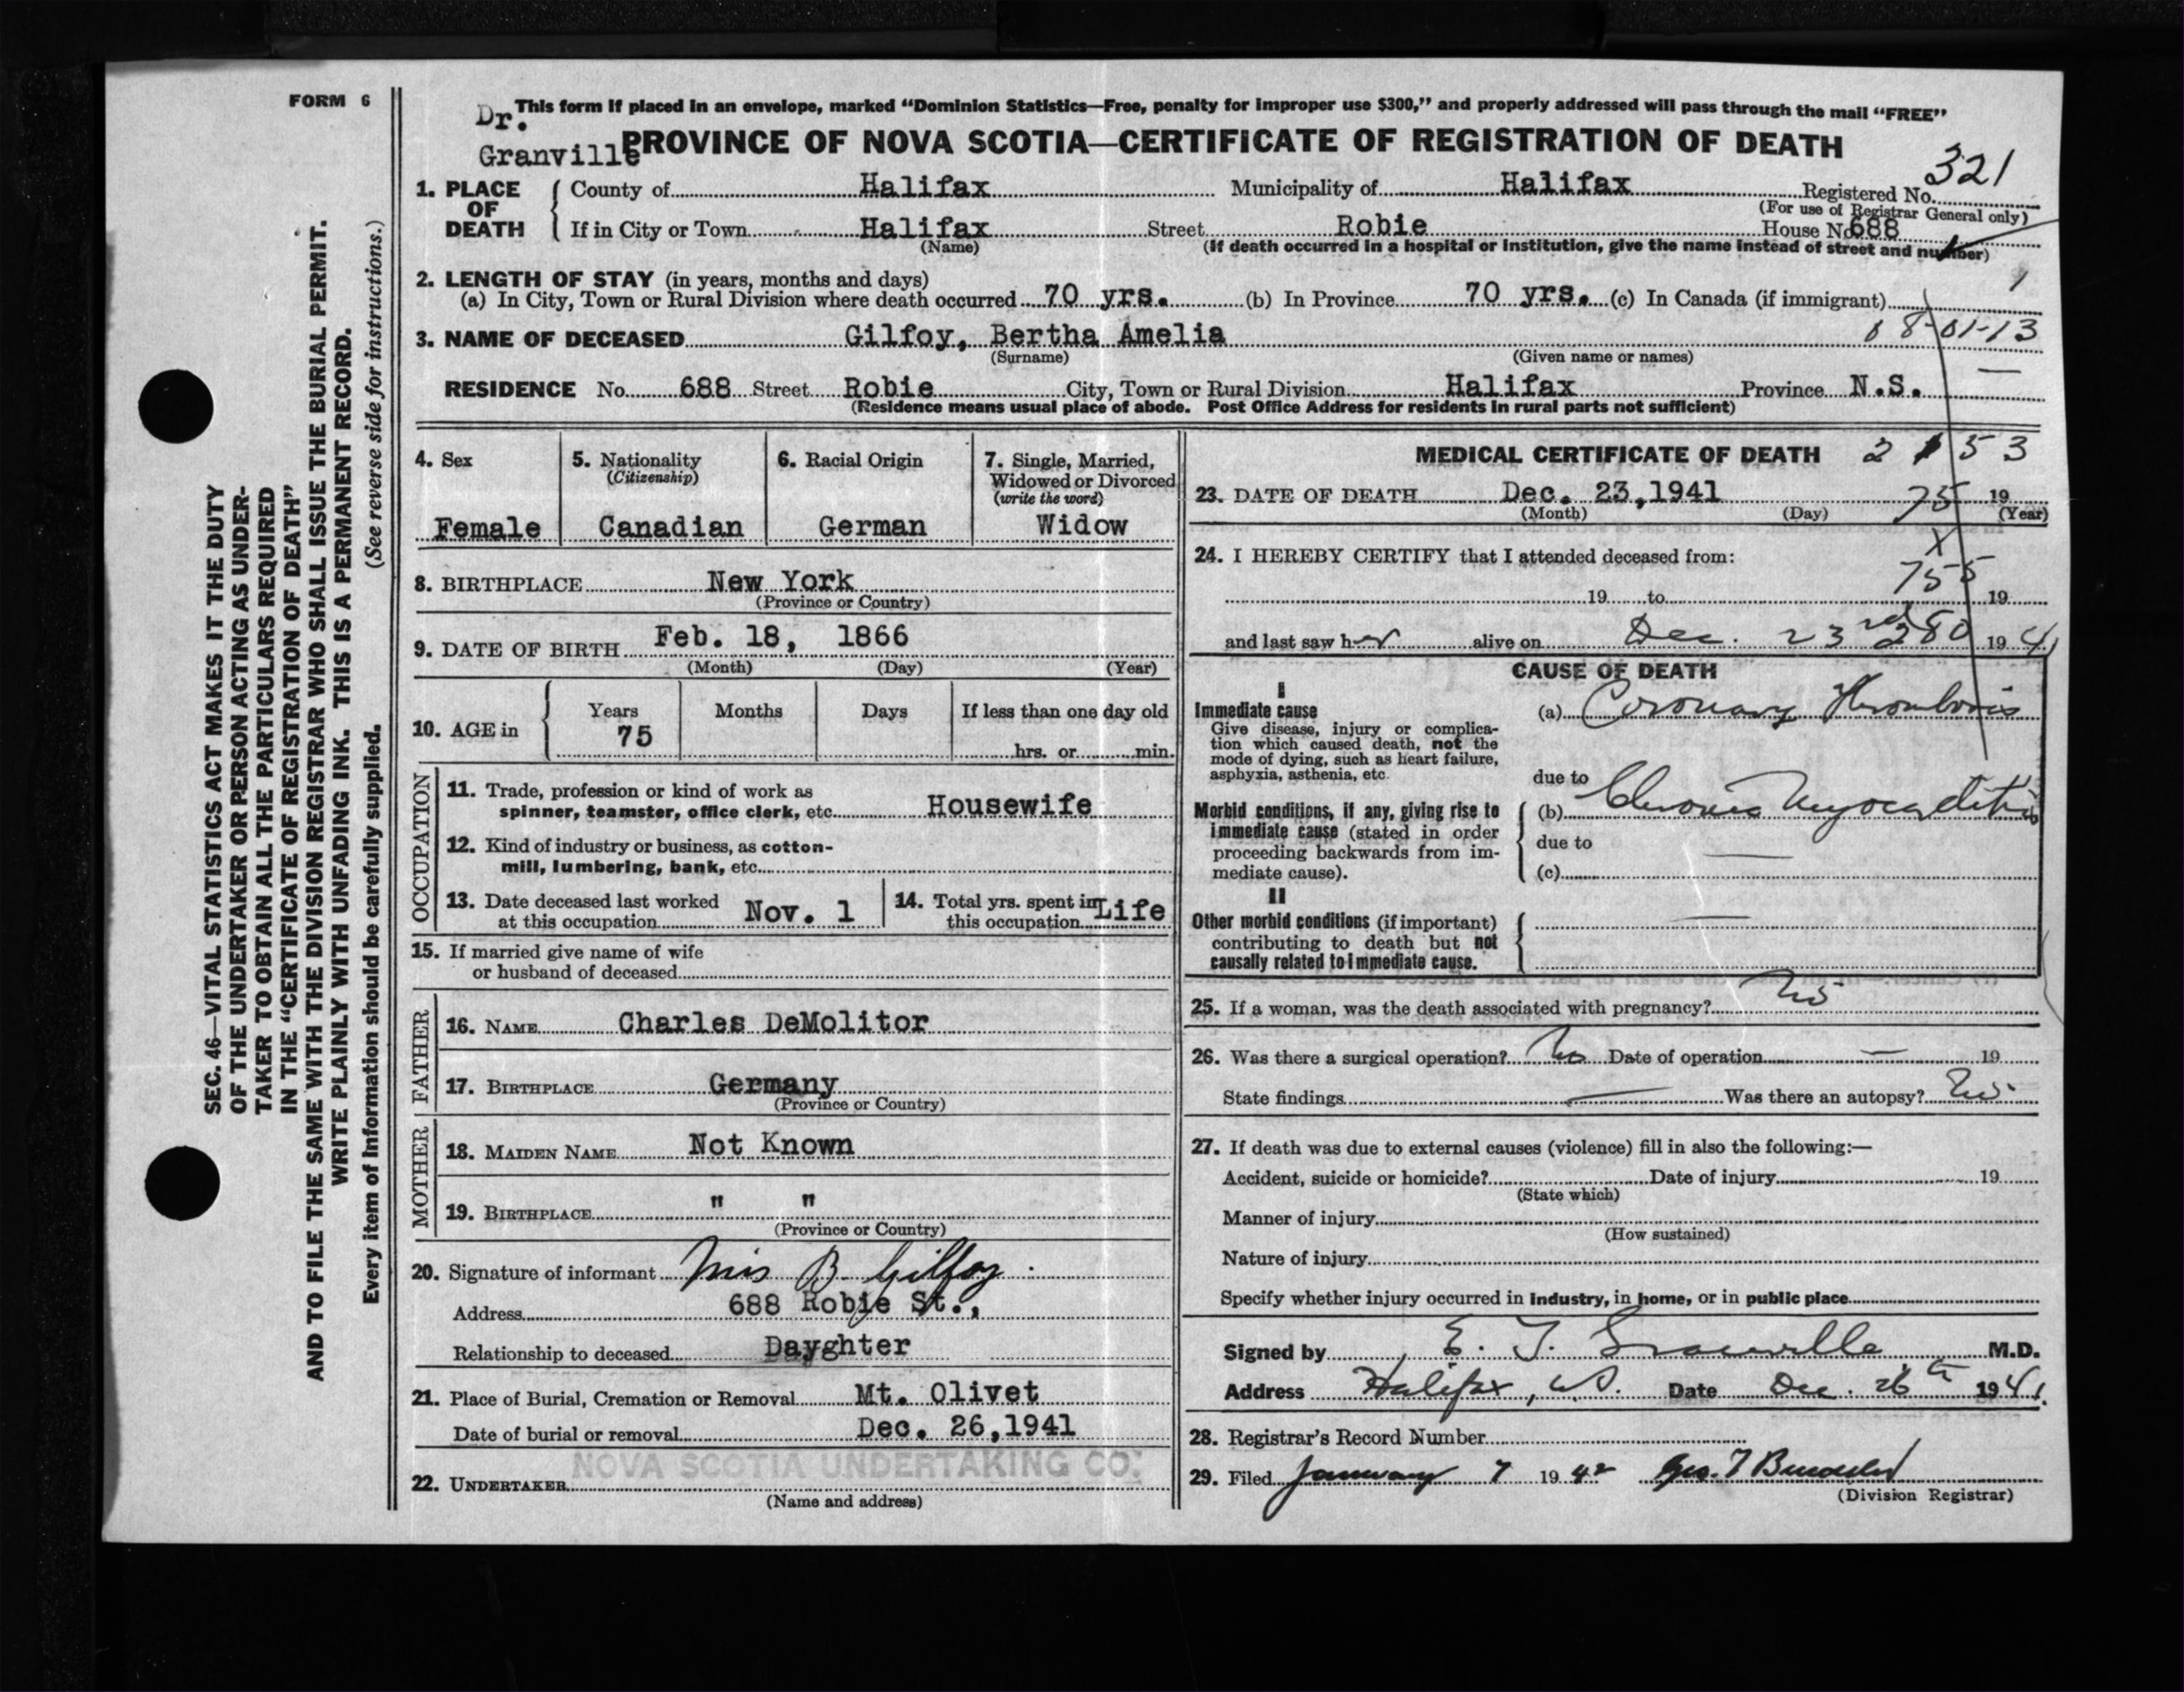 FORM 6
SEC. 46—VITAL STATISTICS ACT MAKES IT THE DUTY
OF THE UNDERTAKER OR PERSON ACTING AS UNDER-
TAKER TO OBTAIN ALL THE PARTICULARS REQUIRED
IN THE "CERTIFICATE OF REGISTRATION OF DEATH"
AND TO FILE THE SAME WITH THE DIVISION REGISTRAR WHO SHALL ISSUE THE BURIAL PERMIT.
WRITE PLAINLY WITH UNFADING INK. THIS IS A PERMANENT RECORD.
Every item of Information should be carefully supplied. (See reverse side for instructions.)
This form if placed in an envelope, marked "Dominion Statistics—Free, penalty for improper use $300," and properly addressed will pass through the mail "FREE"
Dr.
Granville
PROVINCE OF NOVA SCOTIA—CERTIFICATE OF REGISTRATION OF DEATH
321
1. PLACE OF DEATH County of Halifax Municipality of Halifax Registered No.
(For use of Registrar General only)
If in City or Town Halifax Street Robie House No. 688
(Name) (If death occurred in a hospital or institution, give the name instead of street and number)
2. LENGTH OF STAY (in years, months and days)
(a) In City, Town or Rural Division where death occurred 70 yrs. (b) In Province 70 yrs. (c) In Canada (if immigrant)
1
3. NAME OF DECEASED Gilfoy, Bertha Amelia
08-01-13
(Surname) (Given name or names)
RESIDENCE No. 688 Street Robie City, Town or Rural Division Halifax Province N.S.
(Residence means usual place of abode. Post Office Address for residents in rural parts not sufficient)
4. Sex
Female
5. Nationality
(Citizenship)
Canadian
6. Racial Origin
German
7. Single, Married,
Widowed or Divorced
(write the word)
Widow
8. BIRTHPLACE New York
(Province or Country)
9. DATE OF BIRTH Feb. 18, 1866
(Month) (Day) (Year)
10. AGE in Years Months Days If less than one day old
75 hrs. or min.
OCCUPATION
11. Trade, profession or kind of work as
spinner, teamster, office clerk, etc. Housewife
12. Kind of industry or business, as cotton-
mill, lumbering, bank, etc.
13. Date deceased last worked
at this occupation Nov. 1
14. Total yrs. spent in
this occupation Life
15. If married give name of wife
or husband of deceased
FATHER
16. NAME Charles DeMolitor
17. BIRTHPLACE Germany
(Province or Country)
MOTHER
18. MAIDEN NAME Not Known
19. BIRTHPLACE " "
(Province or Country)
20. Signature of informant Mis B. Gilfoy.
Address 688 Robie St.,
Relationship to deceased Dayghter
21. Place of Burial, Cremation or Removal Mt. Olivet
Date of burial or removal Dec. 26,1941
NOVA SCOTIA UNDERTAKING CO.
22. UNDERTAKER
(Name and address)
MEDICAL CERTIFICATE OF DEATH
2 1 5 3
23. DATE OF DEATH Dec. 23,1941 75 19
(Month) (Day) (Year)
X
24. I HEREBY CERTIFY that I attended deceased from:
755
19 to 19
and last saw her alive on Dec. 23rd 280 1941
CAUSE OF DEATH
I
Immediate cause
Give disease, injury or complica-
tion which caused death, not the
mode of dying, such as heart failure,
asphyxia, asthenia, etc.
(a) Coronary Thrombosis
due to
Morbid conditions, if any, giving rise to
immediate cause (stated in order
proceeding backwards from im-
mediate cause).
(b) Chronic Myocarditis
due to
(c)
II
Other morbid conditions (if important)
contributing to death but not
causally related to immediate cause.
25. If a woman, was the death associated with pregnancy? No
26. Was there a surgical operation? No Date of operation — 19
State findings — Was there an autopsy? No.
27. If death was due to external causes (violence) fill in also the following:—
Accident, suicide or homicide? Date of injury 19
(State which)
Manner of injury
(How sustained)
Nature of injury
Specify whether injury occurred in industry, in home, or in public place
Signed by E. T. Granville M.D.
Address Halifax, N.S. Date Dec. 26th 1941.
28. Registrar's Record Number
29. Filed January 7 1942 Geo. T
(Division Registrar)